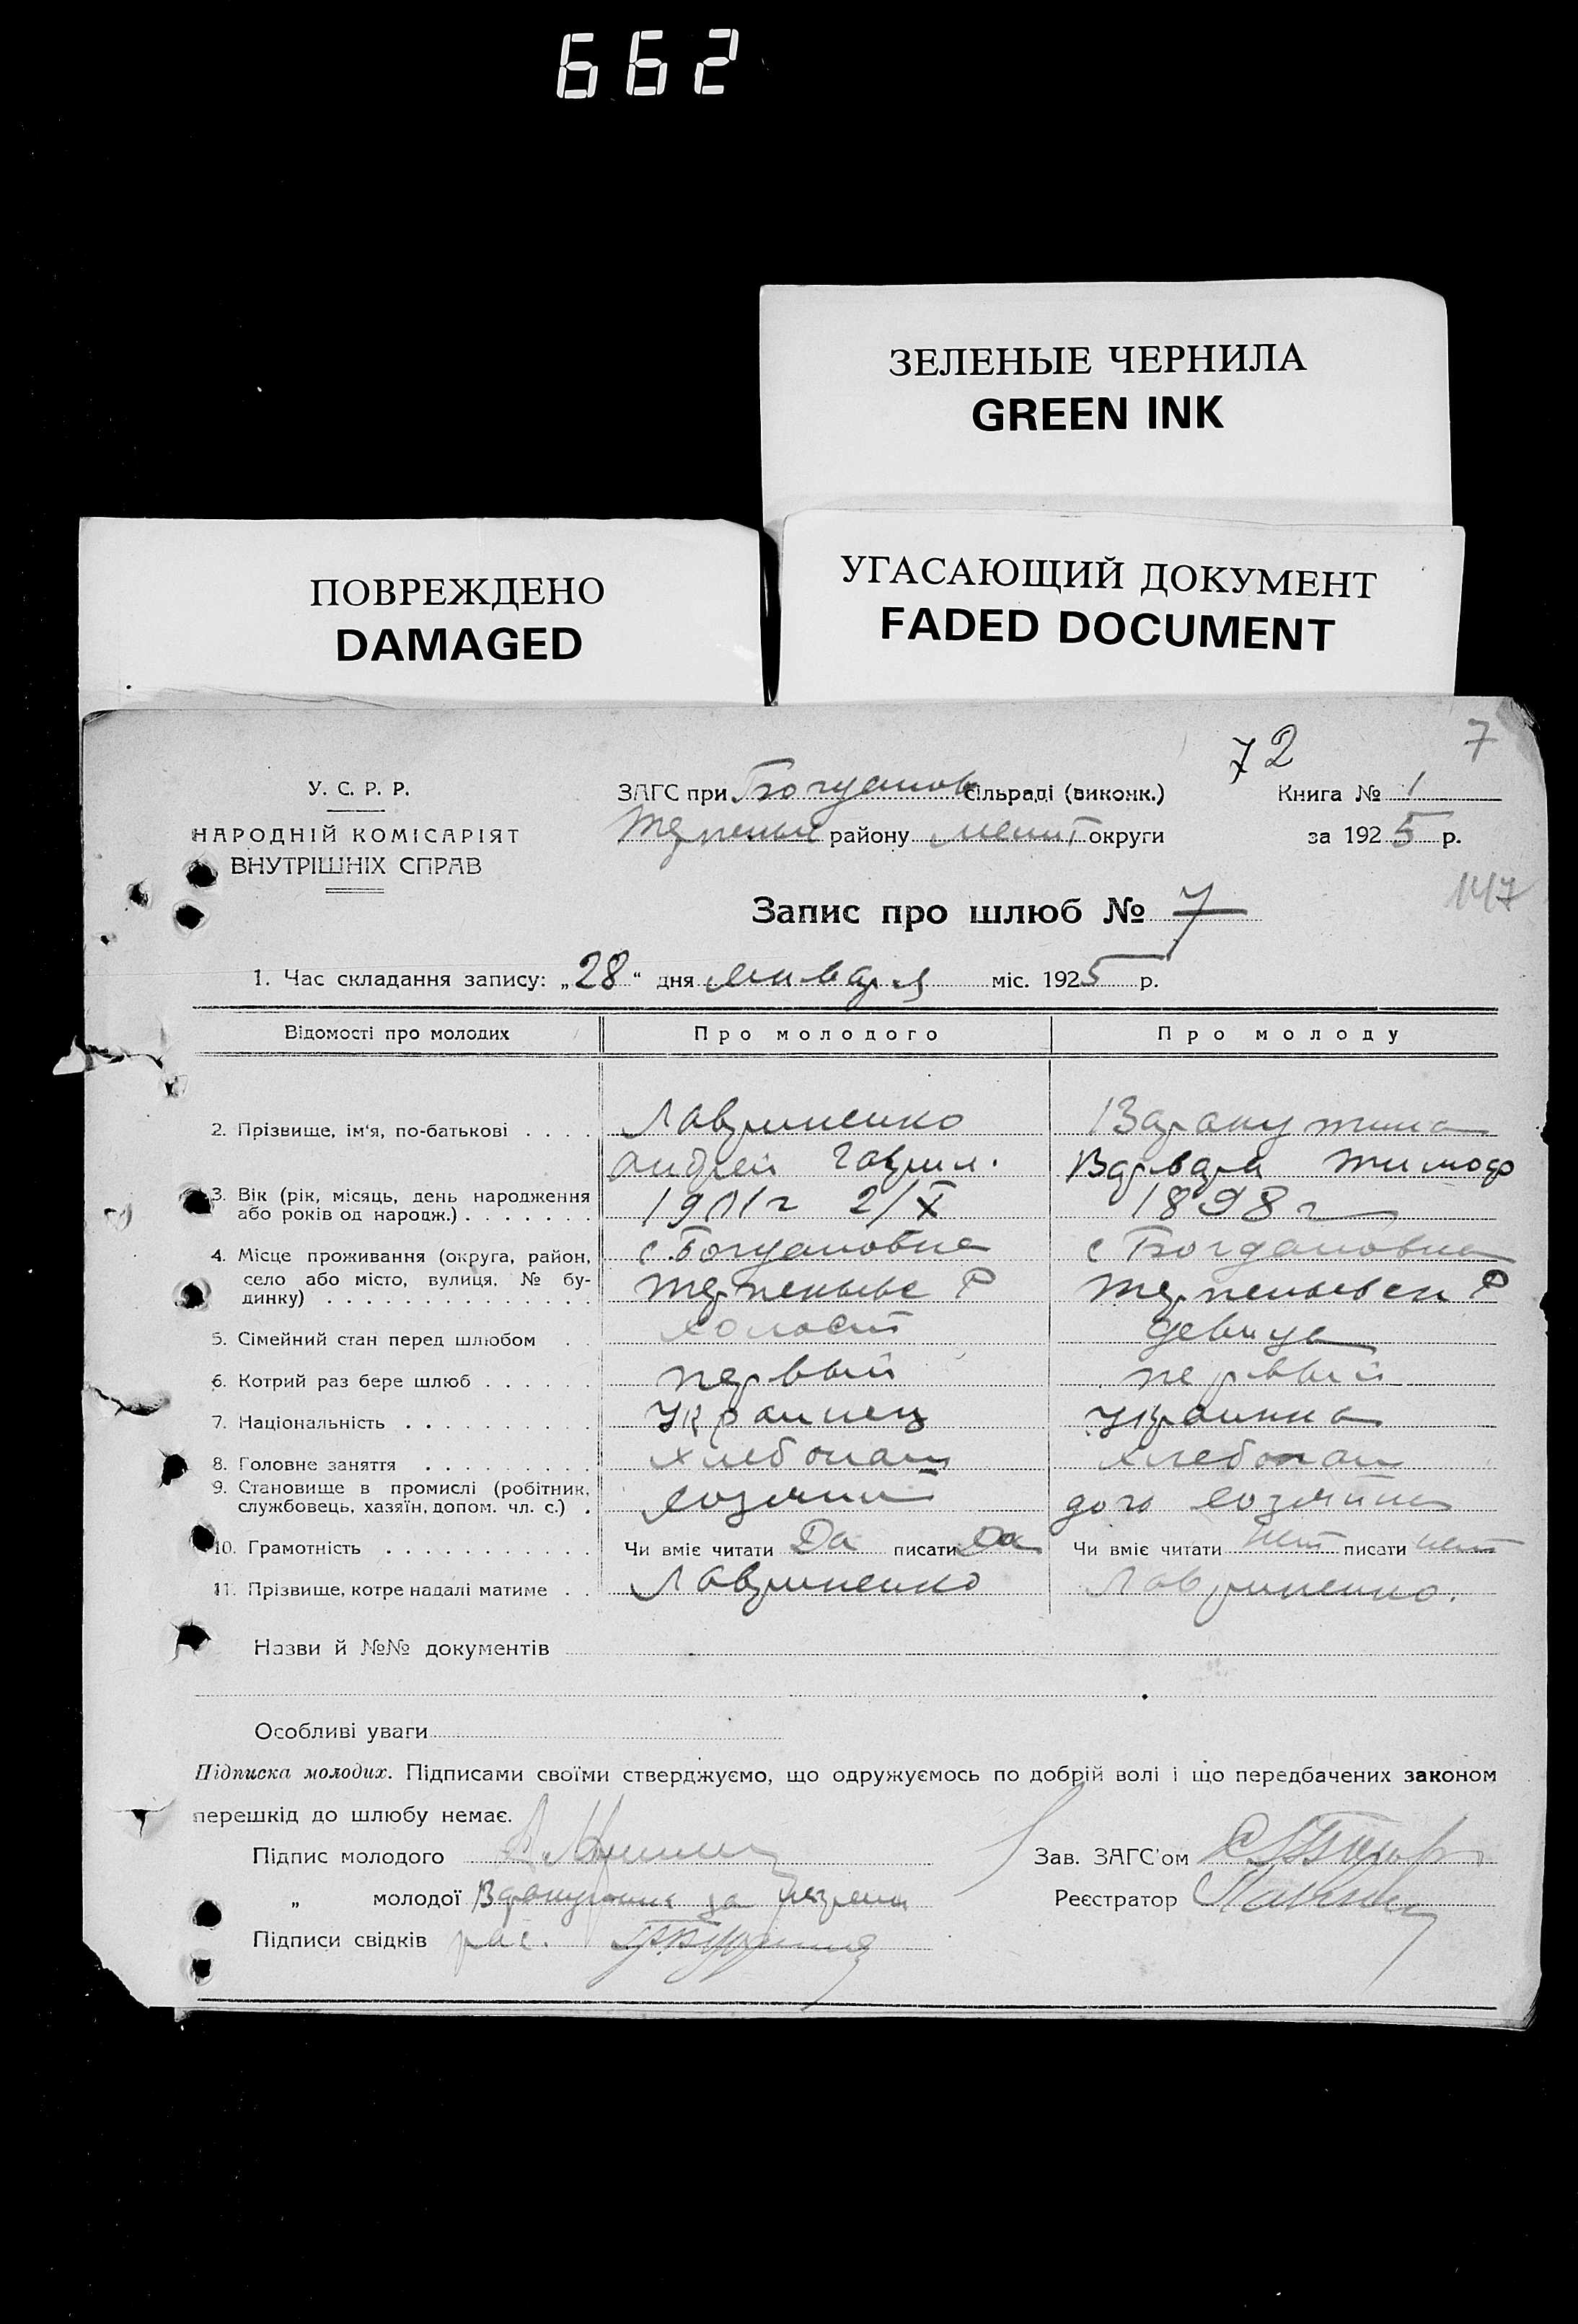 662
ЗЕЛЕНЫЕ ЧЕРНИЛА
GREEN INK
ПОВРЕЖДЕНО
DAMAGED
УГАСАЮЩИЙ ДОКУМЕНТ
FADED DOCUMENT
72 7
У. С. Р. Р.
НАРОДНІЙ КОМІСАРІЯТ
ВНУТРІШНІХ СПРАВ
ЗАГС при Богданов сільраді (виконк.)
Терпеньев району Мелит округи
Книга № 1
за 1925 р.
147
Запис про шлюб № 7
1. Час складання запису: „28“ дня января міс. 1925 р.
Відомості про молодих Про молодого Про молоду
2. Прізвище, ім'я, по-батькові . . . . Лавриненко
Андрей Гаврил. Варвара Тимоф
3. Вік (рік, місяць, день народження
або років од народж.) . . . . . . . 1901 г 2/X 1898 г
4. Місце проживання (округа, район,
село або місто, вулиця, № бу-
динку) . . . . . . . . . . . . . .
с. Богдановка с Богдановка
Терпеньев Р Терпеньевск Р
5. Сімейний стан перед шлюбом . . холост девица
6. Котрий раз бере шлюб . . . . . . первый первый
7. Національність . . . . . . . . Украинец Украинка
8. Головне заняття . . . . . . . . . хлебопаш хлебопаш
9. Становище в промислі (робітник,
службовець, хазяїн, допом. чл. с.) .
хозяин дочь хозяина
10. Грамотність . . . . . . . . . . . Чи вміє читати Да писати Да Чи вміє читати нет писати нет
11. Прізвище, котре надалі матиме . . Лавриненко Лавриненко.
Назви й №№ документів
Особливі уваги
Підписка молодих. Підписами своїми стверджуємо, що одружуємось по добрій волі і що передбачених законом
перешкід до шлюбу немає.
Підпис молодого
„ молодої
Підписи свідків
Зав. ЗАГС'ом
Реєстратор